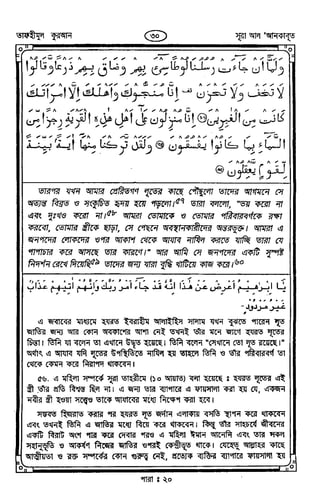 তাফহীমুল কুরআন
৩০
সূরা আল আনকাবূত
وَلَمَّا أَنْ جَاءَتْ رُسُلُنَا لُوطًا سِيءَ بِهِمْ وَضَاقَ بِهِمْ ذَرْعًا وَقَالُوا
لَا تَخَفْ وَلَا تَحْزَنْ إِنَّا مُنَجُّوكَ وَأَهْلَكَ إِلَّا امْرَأَتَكَ
كَانَتْ مِنَ الْغَابِرِينَ ﴿٣٣﴾ إِنَّا مُنْزِلُونَ عَلَى أَهْلِ هَذِهِ الْقَرْيَةِ رِجْزًا مِنَ
السَّمَاءِ بِمَا كَانُوا يَفْسُقُونَ ﴿٣٤﴾ وَلَقَدْ تَرَكْنَا مِنْهَا آيَةً بَيِّنَةً
لِقَوْمٍ يَعْقِلُونَ ﴿٣٥﴾
তারপর যখন আমার প্রেরিতগণ লূতের কাছে পৌঁছুলো তাদের আগমনে সে
অত্যন্ত বিব্রত ও সংকুচিত হৃদয় হয়ে পড়লো। তারা বললো, "ভয় করো না
এবং দুঃখও করো না। আমরা তোমাকে ও তোমার পরিবারবর্গকে রক্ষা
করবো, তোমার স্ত্রীকে ছাড়া, সে পেছনে অবস্থানকারীদের অন্তরভুক্ত। আমরা এ
জনপদের লোকদের ওপর আকাশ থেকে আযাব নাযিল করতে যাচ্ছি তারা যে
পাপাচার করে আসছে তার কারণে।" আর আমি সে জনপদের একটি সুস্পষ্ট
নিদর্শন রেখে দিয়েছি তাদের জন্য যারা বুদ্ধি খাটিয়ে কাজ করে।
يَا إِبْرَاهِيمُ أَعْرِضْ عَنْ هَذَا إِنَّهُ قَدْ جَاءَ أَمْرُ رَبِّكَ وَإِنَّهُمْ آتِيهِمْ عَذَابٌ
غَيْرُ مَرْدُودٍ
এ জবাবের মাধ্যমে হযরত ইবরাহীম আলাইহিস সালাম যখন বুঝতে পারেন লূত
জাতির জন্য আর কোন অবকাশের আশা নেই তখনই তাঁর মনে জাগে হযরত লূতের
চিন্তা। তিনি যা বলেন তা এখানে উদ্ধৃত হয়েছে। তিনি বলেন "সেখানে তো লূত রয়েছে।"
অর্থাৎ এ আযাব যদি লূতের উপস্থিতিতে নাযিল হয় তাহলে তিনি ও তাঁর পরিবারবর্গ তা
থেকে কেমন করে নিরাপদ থাকবেন।
৫৬. এ মহিলা সম্পর্কে সূরা তাহরীমে (১০ আয়াত) বলা হয়েছে ঃ হযরত লূতের এই
স্ত্রী তাঁর প্রতি বিশ্বস্ত ছিল না। এ জন্য তার ব্যাপারে এ ফায়সালা করা হয় যে, একজন
নবীর স্ত্রী হওয়া সত্ত্বেও তাকে আযাবের মধ্যে নিক্ষেপ করা হবে।
সম্ভবত হিজরাত করার পর হযরত লূত জর্দান এলাকায় বসতি স্থাপন করে থাকবেন
এবং তখনই তিনি এ জাতির মধ্যে বিয়ে করে থাকবেন। কিন্তু তাঁর সাহচর্যে জীবনের
একটি বিরাট অংশ পার করে দেবার পরও এ মহিলা ঈমান আনেনি এবং তার সকল
সহানুভূতি ও আকর্ষণ নিজের জাতির ওপরই কেন্দ্রীভূত থাকে। যেহেতু আল্লাহর কাছে
আত্মীয়তা ও রক্ত সম্পর্কের কোন গুরুত্ব নেই, প্রত্যেক ব্যক্তির ব্যাপারে ফায়সালা হয়
পারা ঃ ২০